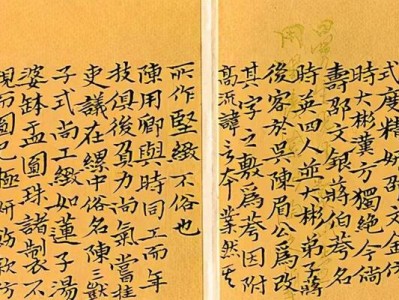 式度精妍邵文金仿
時大彬漢方獨絕今倘
壽邵文銀蔣伯荂名
時英四人並大彬弟子蔣
後客於吳陳眉公爲改
其字之敷爲荂因附
高流諱言本業然其
所作堅緻不俗也
陳用卿與時同工而年
技俱後負力尚氣嘗挂
吏議在縲中俗名陳三獃
子式尚工緻如蓮子湯
婆缽盂圓珠諸製不
規而圓已極妍飭款仿